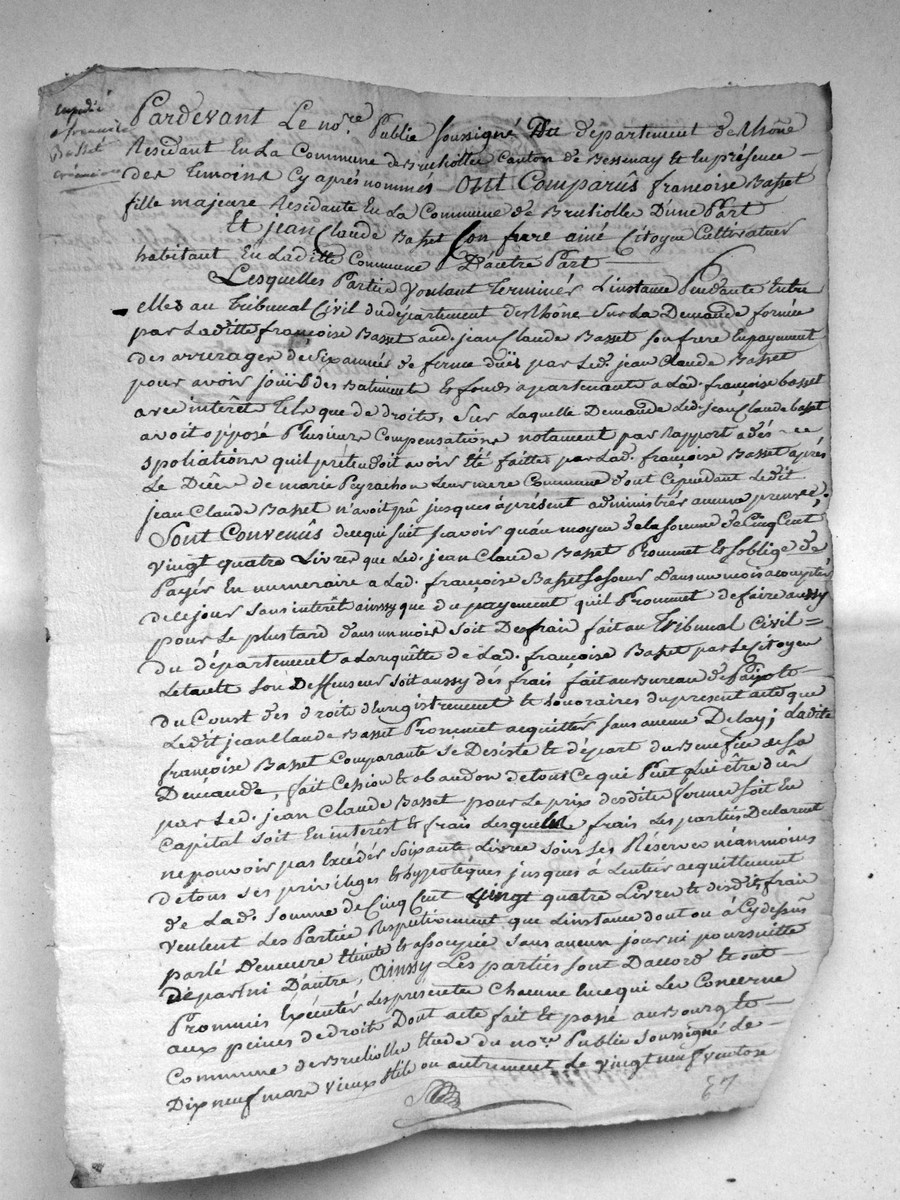 expedié
a francoise
Basset
Pardevant Le no.re Public soussigné Du département de Rhône
Residant En La Commune de Brullolles Canton de Bessenay Et En présence
des Temoins Cy après nommés ont Comparûs francoise Basset
fille majeure Residante En La Commune de Brullolles D'une Part
Et jean Claude Basset son frere ainé Citoyen Cultivateur
habitant En Laditte Commune D'autre Part
Lesquelles Partie voulant Terminér L'instance Pendante Entre
elles au Tribunal Civil du département de Rhône Sur La Demande formée
par Laditte françoise Basset aud. jean Claude Basset son frere En payement
des arrerages de six années de ferme düs par Led. jean Claude Basset
pour avoir joüis des Batiments & fonds apartenants a Lad. françoise basset
avec interêt Tels que de droits, sur Laquelle Demande Led. jean Claude basset
avoit opposé Plusieurs Compensations notament par Rapport a des
spoliations qu'il prétendoit avoir été faittes par Lad. françoise Basset après
Le Décès de marie Peyrachon Leur mere Commune dont Cependant Ledit
jean Claude Basset n'avoit pû jusques aprésent administrér aucune preuve;
Sont Convenûs de ce qui suit scavoir qu'au moyen de la somme de Cinq Cent
vingt quatre Livres que Led. jean Claude Basset Prommet & s'oblige de
Payér En numeraire a Lad. françoise Basset sa soeur Dans un mois a compter
de ce jour sans interêt ainssy que du payement qu'il Prommet de faire aussy
pour Le plus tard dans un mois soit Des frais fait au Tribunal Civil
du département a La requête de Lad. françoise Basset par Le Citoyen
Letault son Deffenseur soit aussy des frais fait au Bureau de Paix &
du Coust des droits d'Enregistrement & honoraires du present acte que
Ledit jean Claude Basset Prommet acquitter sans aucun Delay; Ladite
françoise Basset Comparante se Desiste & départ du Benefice de sa
Demande, fait Cession & abandon de tous Ce qui Peut Lui être dû
par Led. jean Claude Basset pour Le prix desdite fermes soit En
Capital soit En interêst & frais Lesquels frais Les parties Declarent
ne pouvoir pas Excédér soixante Livres sous Les Réserves néanmoins
de tous ses privileges & hypotèques jusques à L'entiér acquittement
de Lad. somme de Cinq Cent vingt quatre Livres & desdits frais
veulent Les Parties Respectivement que L'instance dont on à Cy dessus
parlé Demeure Eteinte & assoupie sans aucun jour ni poursuitte
De part ni D'autre, Ainssy Les parties sont D'accord & ont
Prommis Exécutér Les presentes Chacune En ce qui Les Concerne
aux peines de droit Dont acte fait Et passé au Bourg &
Commune de Brullolles Etude du no.re Public soussigné Le
Dix neuf mars vieux stile ou autrement Le vingt neuf ventose
67